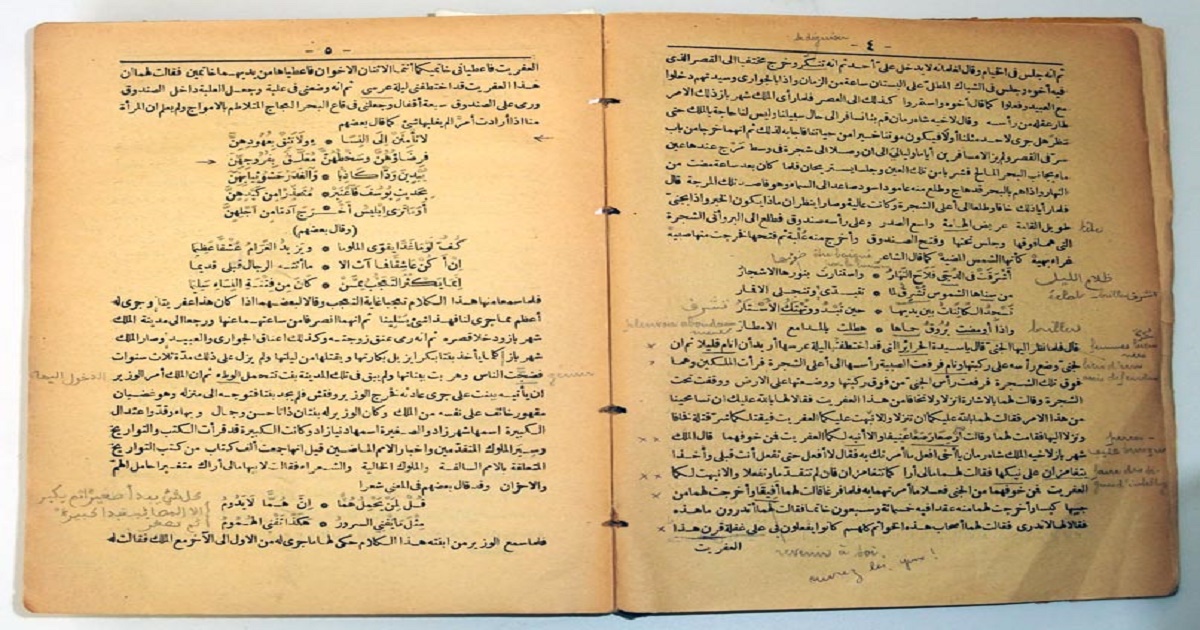 - ٤ -
ثم انه جلس فى الخيام وقال لغلمانه لا يدخل على أحد ثم انه تنكر وخرج مختفيا الى القصر الذى
فيه أخوه وجلس فى الشباك المطل على البستان ساعة من الزمان واذا بالجوارى وسيدتهم دخلوا
مع العبيد وفعلوا كما قال أخوه واستمروا كذلك الى العصر فلما رأى الملك شهر باز ذلك الامر
طار عقله من رأسه وقال لاخيه شاه زمان قم بنا نسافر الى حال سبيلنا وليس لنا حاجة بالملك حتى
ننظر هل جرى لاحد مثلنا أو لا فيكون موتنا خير من حياتنا فاجابه لذلك ثم انهما خرجا من باب
سرى فى القصر ولم يزالا مسافرين أياما وليالى الى ان وصلا الى شجرة فى وسط مرج عندها عين
ماء بجانب البحر المالح فشربا من تلك العين وجلسا يستريحان فلما كان بعد ساعة مضت من
النهار واذاهم بالبحر قد هاج وطلع منه عامود أسود صاعد الى السماء وهو قاصد تلك المرجة قال
فلما رأيا ذلك خافا وطلعا الى أعلى الشجرة وكانت عالية وصارا ينظران ماذا يكون الخبر واذا بجنى
طويل القامة عريض الهامة واسع الصدر وعلى رأسه صندوق فطلع الى البر وأتى الشجرة
التى هما فوقها وجلس تحتها وفتح الصندوق وأخرج منه علبة ثم فتحها فخرجت منها صبية
غراء بهية كأنها الشمس المضيئة كما قال الشاعر
أشرقت فى الدجى فلاح النهار * واستنارت بنورها الاشجار
من سناها الشموس تشرق لما * تتبدى وتنجلى الاقمار
تسجد الكائنات بين يديها * حين تبدو وتهتك الأستار
واذا أومضت بروق حماها * هطلت بالمدامع الامطار
قال فلما نظر اليها الجنى قال ياسيدة الحرائر التى قد اختطفتك ليلة عرسها أريد أن أنام قليلا ثم ان
الجنى وضع رأسه على ركبتها ونام فرفعت الصبية رأسها الى أعلى الشجرة فرأت الملكين وهما
فوق تلك الشجرة فرفعت رأس الجنى من فوق ركبتها ووضعتها على الارض ووقفت تحت
الشجرة وقالت لهما بالاشارة انزلا ولا تخافا من هذا العفريت فقالا لها بالله عليك ان تسامحينا
من هذا الامر فقالت لهما بالله عليكما ان تنزلا والا نبهت عليكما العفريت فيقتلكما شر قتلة فخافا
ونزلا اليها فقامت لهما وقالت ارصعا رصعا عنيفا والا أنبه لكما العفريت فمن خوفهما قال الملك
شهر باز لاخيه الملك شاه زمان يا أخى افعل ما أمرتك به فقال لا أفعل حتى تفعل أنت قبلى وأخذا
يتغامزان على نيكها فقالت لهما مالى أراكما تتغامزان فان لم تتقدما وتفعلا والا نبهت لكما
العفريت فمن خوفهما من الجنى فعلا ما أمرتهما به فلما فرغا قالت لهما أفيقا وأخرجت لهما من
جيبها كيسا وأخرجت لهما منه عقدا فيه خمسمائة وسبعون خاتما فقالت لهما أتدرون ما هذه
فقالا لها لا ندرى فقالت لهما أصحاب هذه الخواتم كلهم كانوا يفعلون بى على غفلة قرن هذا
العفريت
revenir à soi
ouvrez les yeux !
ظلام الليل
- ٥ -
العفريت فاعطيانى خاتميكما أنتما الاثنان الاخران فاعطياها من يديهما خاتمين فقالت لهما ان
هذا العفريت قد اختطفنى ليلة عرسى ثم انه وضعنى فى علبة وجعل العلبة داخل الصندوق
ورمى على الصندوق سبعة أقفال وجعلنى فى قاع البحر العجاج المتلاطم بالامواج ولم يعلم ان المرأة
منا اذا أرادت أمرا لم يغلبها شئ كما قال بعضهم
لا تأمنن الى النسا * ولا تثق بعهودهن
فرضاؤهن وسخطهن * معلق بفروجهن
يبدين ودا كاذبا * والغدر حشو ثيابهن
بحديث يوسف فاعتبر * متحذرا من كيدهن
أو ما ترى ابليس أخـ * ـرج آدما من أجلهن
(وقال بعضهم)
كف لوما غدا يقوى الملوما * ويزيد الغرام عشقا عظيما
ان أكن عاشقا فما آت الا * ما أتته الرجال قبلى قديما
انما يكثر التعجب ممن * كان من فتنة النساء سليما
فلما سمعا منها هذا الكلام تعجبا غاية العجب وقالا لبعضهما اذا كان هذا عفريتا وجرى له
أعظم مما جرى لنا فهذا شئ يسلينا ثم انهما انصرفا من ساعتهما عنها ورجعا الى مدينة الملك
شهر باز ودخلا قصره ثم انه رمى عنق زوجته وكذلك أعناق الجوارى والعبيد وصار الملك
شهر باز كلما يأخذ بنتا بكرا يزيل بكارتها ويقتلها من ليلتها ولم يزل على ذلك مدة ثلاث سنوات
فضجت الناس وهربت ببناتها ولم يبق فى تلك المدينة بنت تتحمل الوطء ثم ان الملك أمر الوزير
ان يأتيه ببنت على جرى عادته فخرج الوزير وفتش فلم يجد بنتا فتوجه الى منزله وهو غضبان
مقهور خائف على نفسه من الملك وكان الوزير له بنتان ذاتا حسن وجمال وبهاء وقد واعتدال
الكبيرة اسمها شهرزاد والصغيرة اسمها دنيازاد وكانت الكبيرة قد قرأت الكتب والتواريخ
وسير الملوك المتقدمين وأخبار الامم الماضين قيل انها جمعت ألف كتاب من كتب التواريخ
المتعلقة بالامم السالفة والملوك الخالية والشعراء فقالت لابيها مالى أراك متغيرا حامل الهم
والاحزان وقد قال بعضهم فى المعنى شعرا
قل لمن يحمل هما * ان هما لا يدوم
مثل ما يفنى السرور * هكذا تفنى الهموم
فلما سمع الوزير من ابنته هذا الكلام حكى لها ما جرى له من الاول الى الآخر مع الملك فقالت له